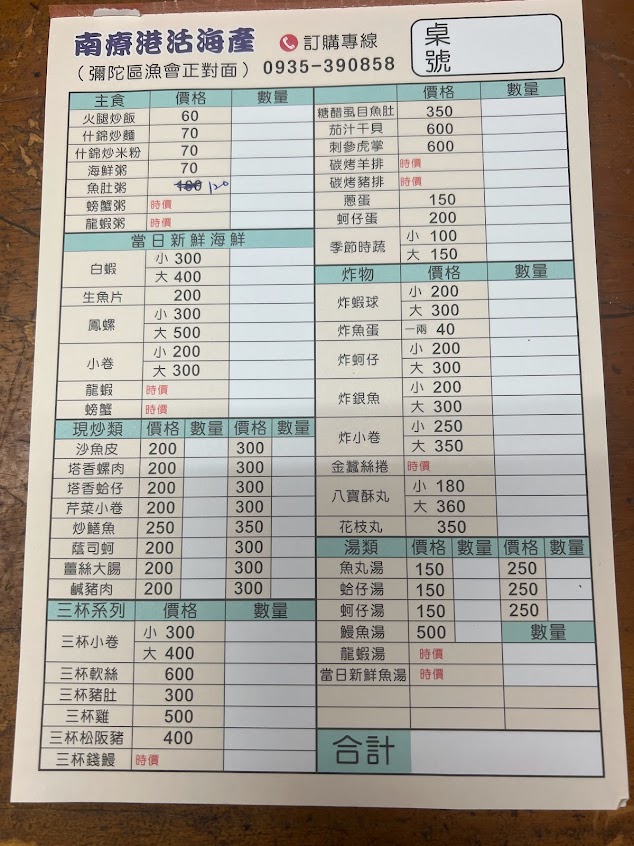 南寮港活海產
訂購專線
(彌陀區漁會正對面) 0935-390858
桌號
主食 價格 數量
火腿炒飯 60
什錦炒麵 70
什錦炒米粉 70
海鮮粥 70
魚肚粥 120
螃蟹粥 時價
龍蝦粥 時價
當日新鮮海鮮
白蝦 小 300
大 400
生魚片 200
鳳螺 小 300
大 500
小卷 小 200
大 300
龍蝦 時價
螃蟹 時價
現炒類 價格 數量 價格 數量
沙魚皮 200 300
塔香螺肉 200 300
塔香蛤仔 200 300
芹菜小卷 200 300
炒鱔魚 250 350
蔭司蚵 200 300
薑絲大腸 200 300
鹹豬肉 200 300
三杯系列 價格 數量
三杯小卷 小 300
大 400
三杯軟絲 600
三杯豬肚 300
三杯雞 500
三杯松阪豬 400
三杯錢鰻 時價
價格 數量
糖醋虱目魚肚 350
茄汁干貝 600
刺參虎掌 600
碳烤羊排 時價
碳烤豬排 時價
蔥蛋 150
蚵仔蛋 200
季節時蔬 小 100
大 150
炸物 價格 數量
炸蝦球 小 200
大 300
炸魚蛋 一兩 40
炸蚵仔 小 200
大 300
炸銀魚 小 200
大 300
炸小卷 小 250
大 350
金蠶絲捲 時價
八寶酥丸 小 180
大 360
花枝丸 350
湯類 價格 數量 價格 數量
魚丸湯 150 250
蛤仔湯 150 250
蚵仔湯 150 250
鰻魚湯 500 數量
龍蝦湯 時價
當日新鮮魚湯 時價
合計